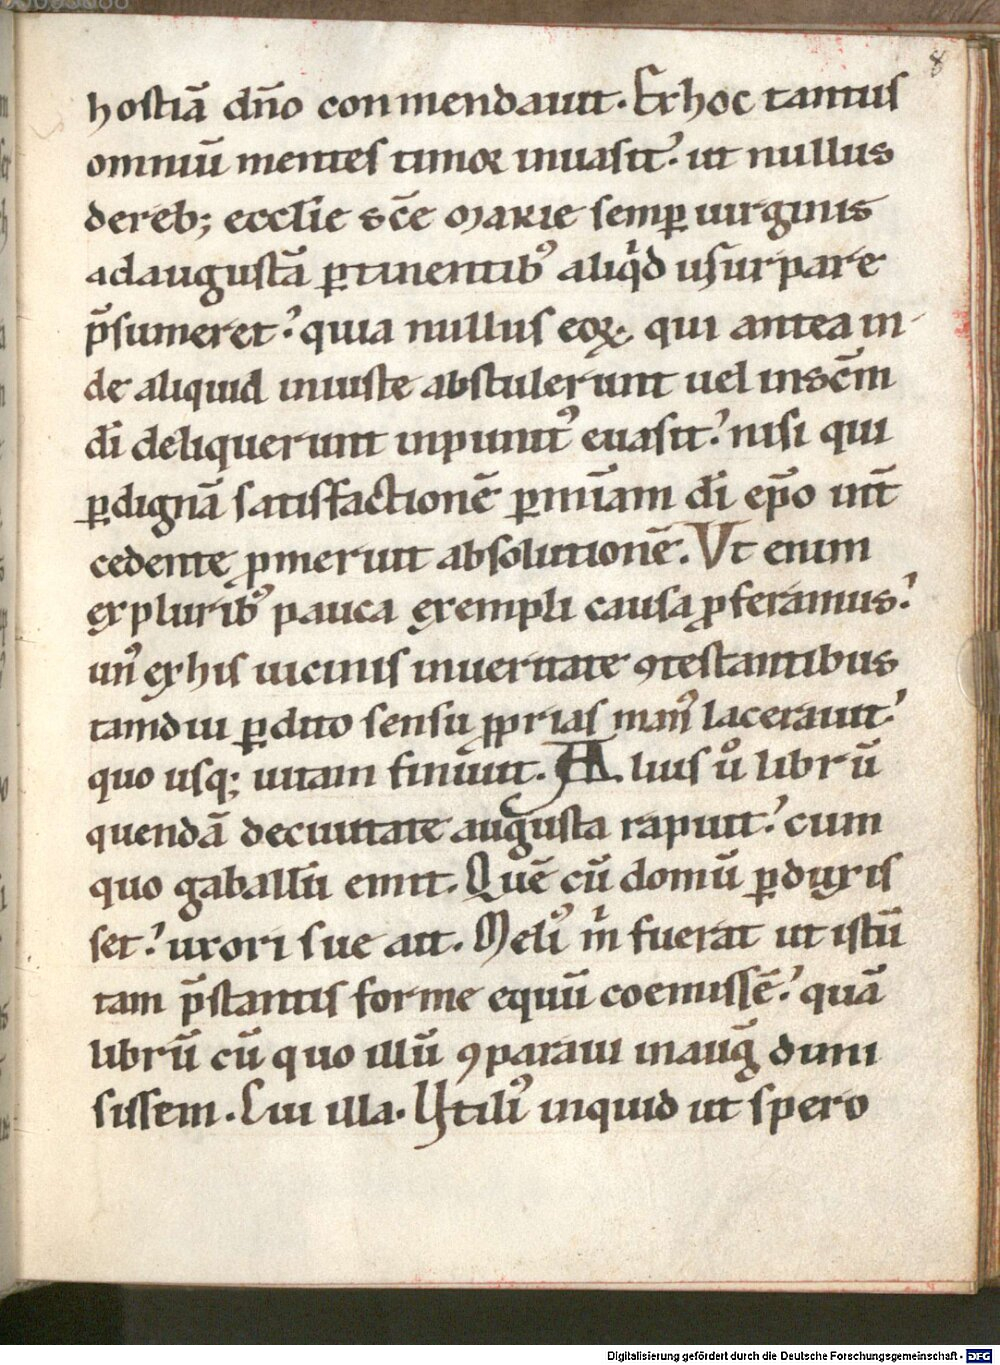 8
hostiā dn̄o conmendauit. Ex hoc tantus
omniū mentes timor inuasit. ut nullus
dereb; ecclīe sc̄e marie semp uirginis
adaugustā ptinentib⁹ aliq̇d usurpare
p̄sumeret. quia nullus eoꝝ. qui antea in-
de aliquid iniuste abstulerunt uel insc̄m
dī deliquerunt inpunit⁹ euasit. nisi qui
ꝑdignā satisfactionē ꝑmīam dī ep̄o int̄
cedente ꝓmeruit absolutionē. Vt enim
explurib⁹ pauca exempli causa ꝓferamus.
un⁹ exhis uicinis inueritate ꝯtestantibus
tamdiu ꝑdito sensu ꝓprias man⁹ lacerauit.
quo usq; uitam finiuit. Alius u̇o librū
quendā deciuitate augusta rapuit. cum
quo gaballū emit. Quē cū domū ꝑduxis
set. uxori sue ait. Meli⁹ ṁ fuerat ut istū
tam p̄stantis forme equū coemissē. quā
librū cū quo illū ꝯparaui inauḡ dimi
sissem. Cui illa. Utili⁹ inquid ut spero
Digitalisierung gefördert durch die Deutsche Forschungsgemeinschaft - DFG